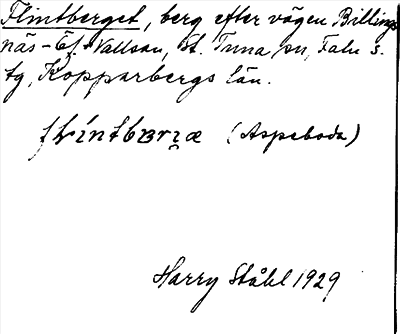 Flintberget, berg efter vägen Billings
näs - Ö. Vallsan, St. Tuna sn, Falu s.
tg, Kopparbergs län.
(Aspeboda)
Harry Ståhl 1929